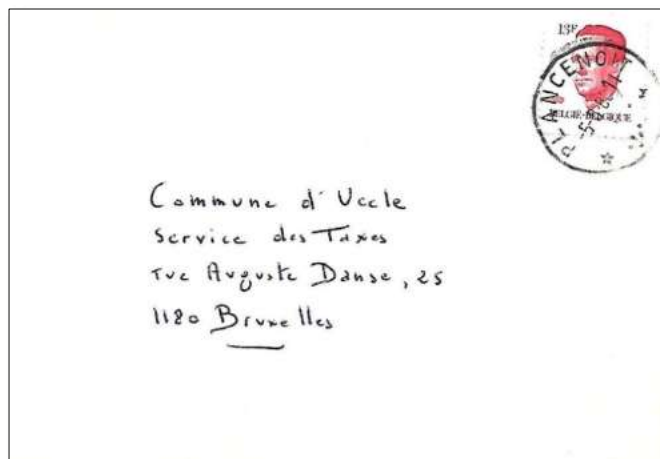 13F
PLANCENOIT
BELGIË-BELGIQUE
Commune d'Uccle
Service des Taxes
rue Auguste Danse, 25
1180 Bruxelles